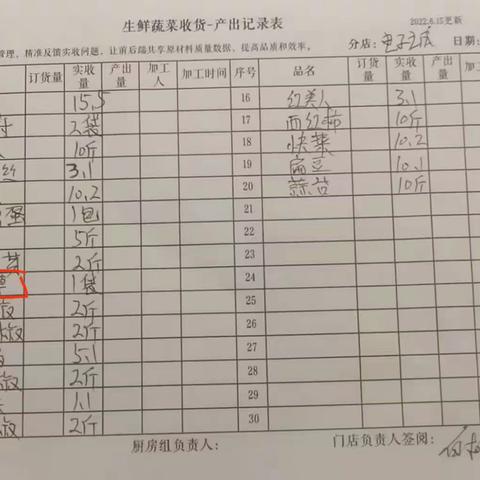 生鲜蔬菜收货-产出记录表
2022.6.15更新
管理，精准反馈实收问题，让前后端共享原材料质量数据、提高品质和效率。 分店： 日期：
订货量 实收量 产出量 加工人 加工时间 序号 品名 订货量 实收量 产出量 加工
15.5 16 红美人 3.1
2袋 17 西红柿 10斤
10斤 18 快菜 10.2
丝 3.1 19 扁豆 10.1
10.2 20 蒜苔 10斤
蛋 1包 21
5斤 22
2斤 23
1袋 24
2斤 25
椒 2斤 26
5.1 27
椒 2斤 28
1.1 29
椒 2斤 30
厨房组负责人： 门店负责人签阅：